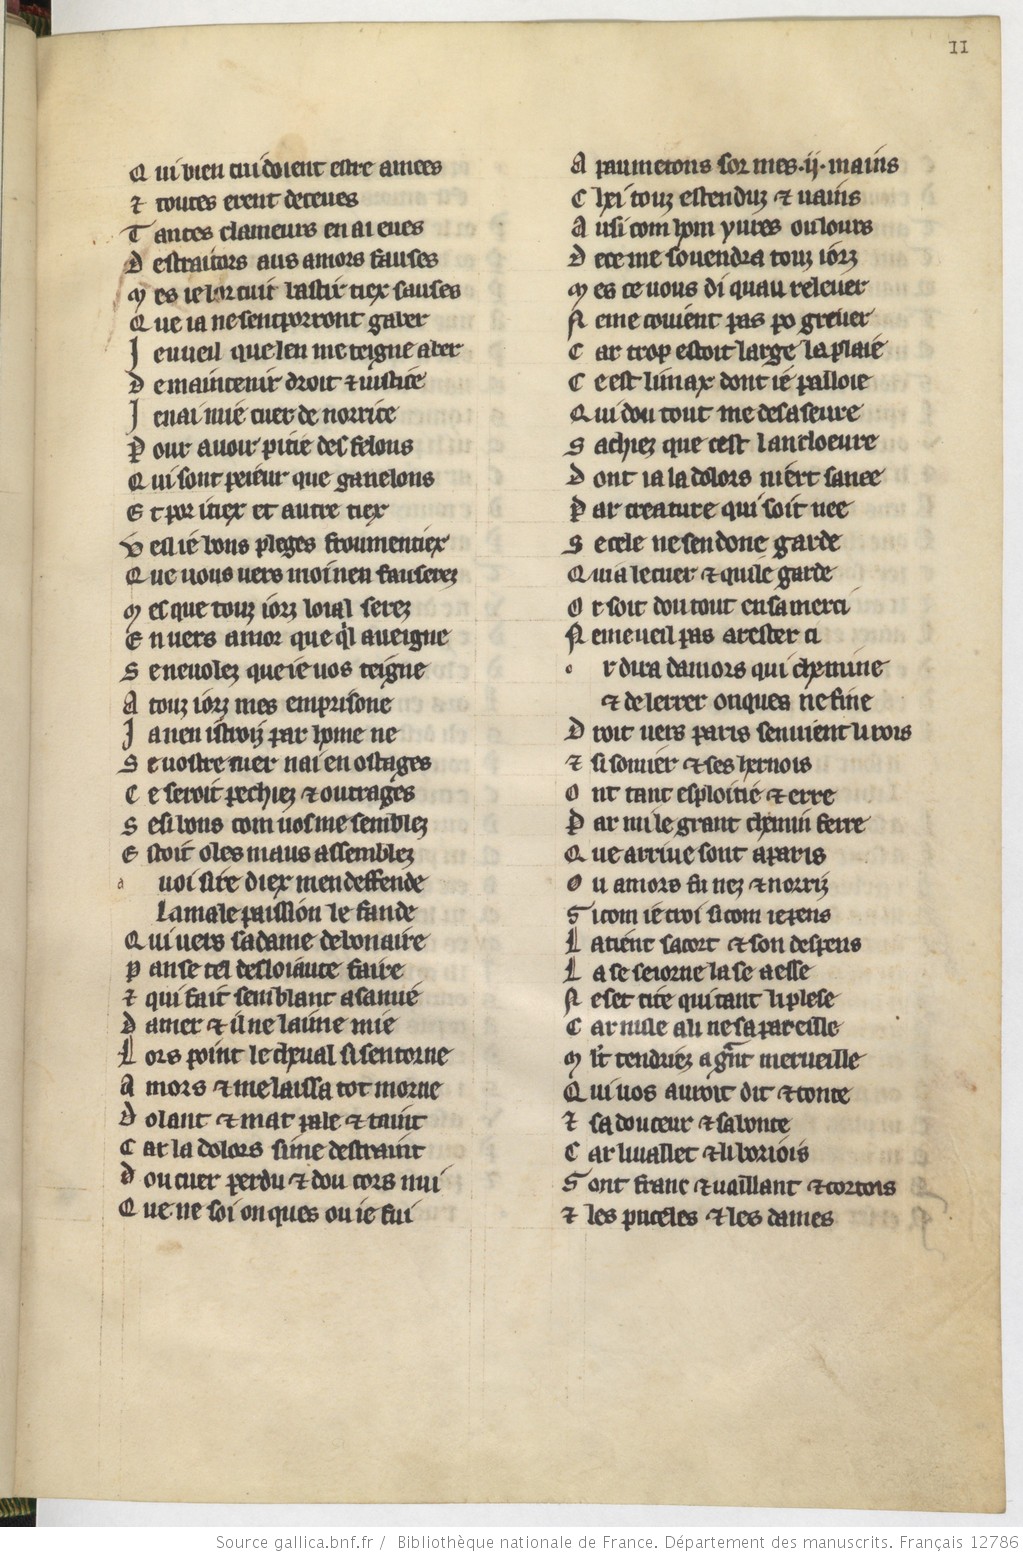 11
Qui bien cuidoient estre amees
⁊ toutes erent deceues
Tantes clameurs en ai eues
Des traitors aus amors fauses
Mes ie lor cuit bastir tiex sauses
Que ia ne sen porront gaber
Je vueil que len me teigne aber
De maintenir droit ⁊ iustice
Jen ai mie cuer de norrice
Pour avoir pitie des felons
Qui sont peieur que ganelons
Et por itiex et autre tiex
Ves ie bons pleges froumentiex
Que vous vers moi nen fauserez
Mes que touz iorz loial serez
Envers amor que ql aveigne
Se ne volez que ie vos teigne
A touz iorz mes emprisone
Ja nen istroiz par home ne
Se vostre cuer nai en ostages
Ce seroit pechiez ⁊ outrages
Sesi bons com vos me semblez
Estoit o les maus assemblez
a uoi sire diex men deffende
La male passion le fande
Qui vers sa dame debonaire
Panse tel desloiaute faire
⁊ qui fait semblant a sa mie
Damer ⁊ il ne laime mie
Lors point le cheval si sen torne
Amors ⁊ me laissa tot morne
Dolant ⁊ mat pale ⁊ taint
Car la dolors si me destraint
Dou cuer perdu ⁊ dou cors mui
Que ne soi onques ou ie fui
A paumetons sor mes .ij. mains
Chei touz estenduz ⁊ vains
Ausi com hom yures ou lours
De ce me sovendra touz iorz
Mes ce vous di quau relever
Ne me covient pas po grever
Car trop estoit large la plaie
Ce est li max dont ie palloie
Qui dou tout me desaseure
Sachiez que cest lancloeure
Dont ia la dolors niert sanee
Par creature qui soit nee
Se cele ne sen done garde
Qui a le cuer ⁊ qui le garde
Or soit dou tout en sa merci
Ne me veil pas arester ci
o r dira damors qui chemine
⁊ de lerrer onques ne fine
Droit vers paris sen vient li rois
⁊ si somier ⁊ ses hernois
Ont tant esploitie ⁊ erre
Par mi le grant chemin ferre
Que arrive sont a paris
Ou amors fu nez ⁊ norriz
Si com ie croi si com ie pens
La tient sa cort ⁊ son despens
La se seiorne la se aesse
Nes et cite qui tant li plese
Car nule a li ne sapareille
Mlt tendriez a gnt merveille
Qui vos auroit dit ⁊ conte
⁊ sa douceur ⁊ sa bonte
Car li vallet ⁊ li boriois
Sont franc ⁊ vaillant ⁊ cortois
⁊ les puceles ⁊ les dames
Source gallica.bnf.fr / Bibliothèque nationale de France. Département des manuscrits. Français 12786